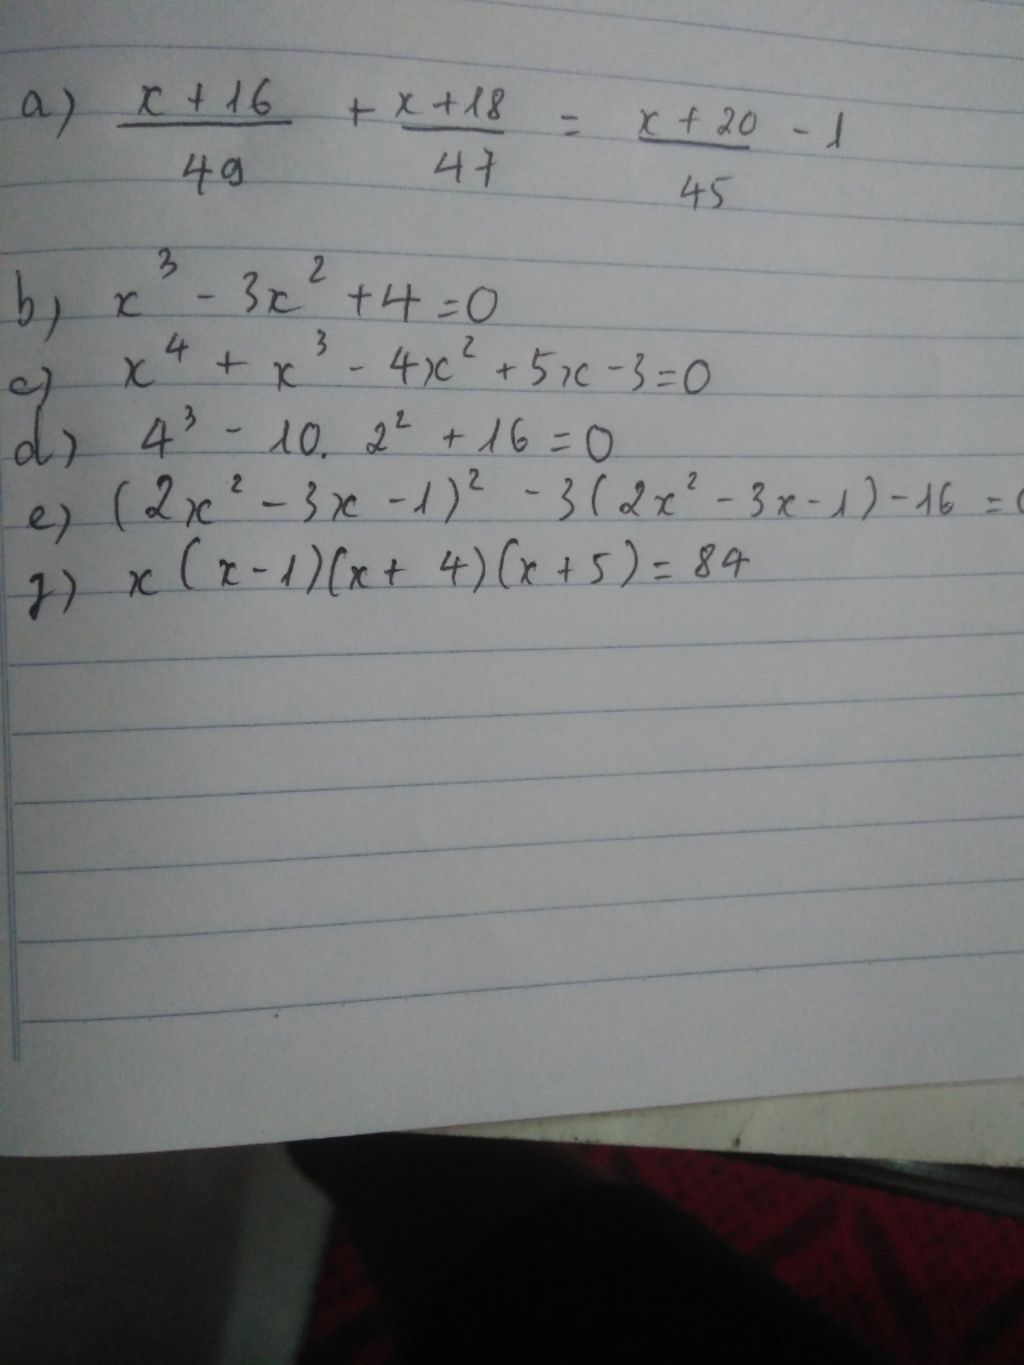 a) x + 16 / 49 + x + 18 / 47 = x + 20 / 45 - 1
b) x³ - 3x² + 4 = 0
c) x⁴ + x³ - 4x² + 5x - 3 = 0
d) 4³ - 10. 2² + 16 = 0
e) (2x² - 3x - 1)² - 3(2x² - 3x - 1) - 16 = 0
g) x (x - 1)(x + 4)(x + 5) = 84